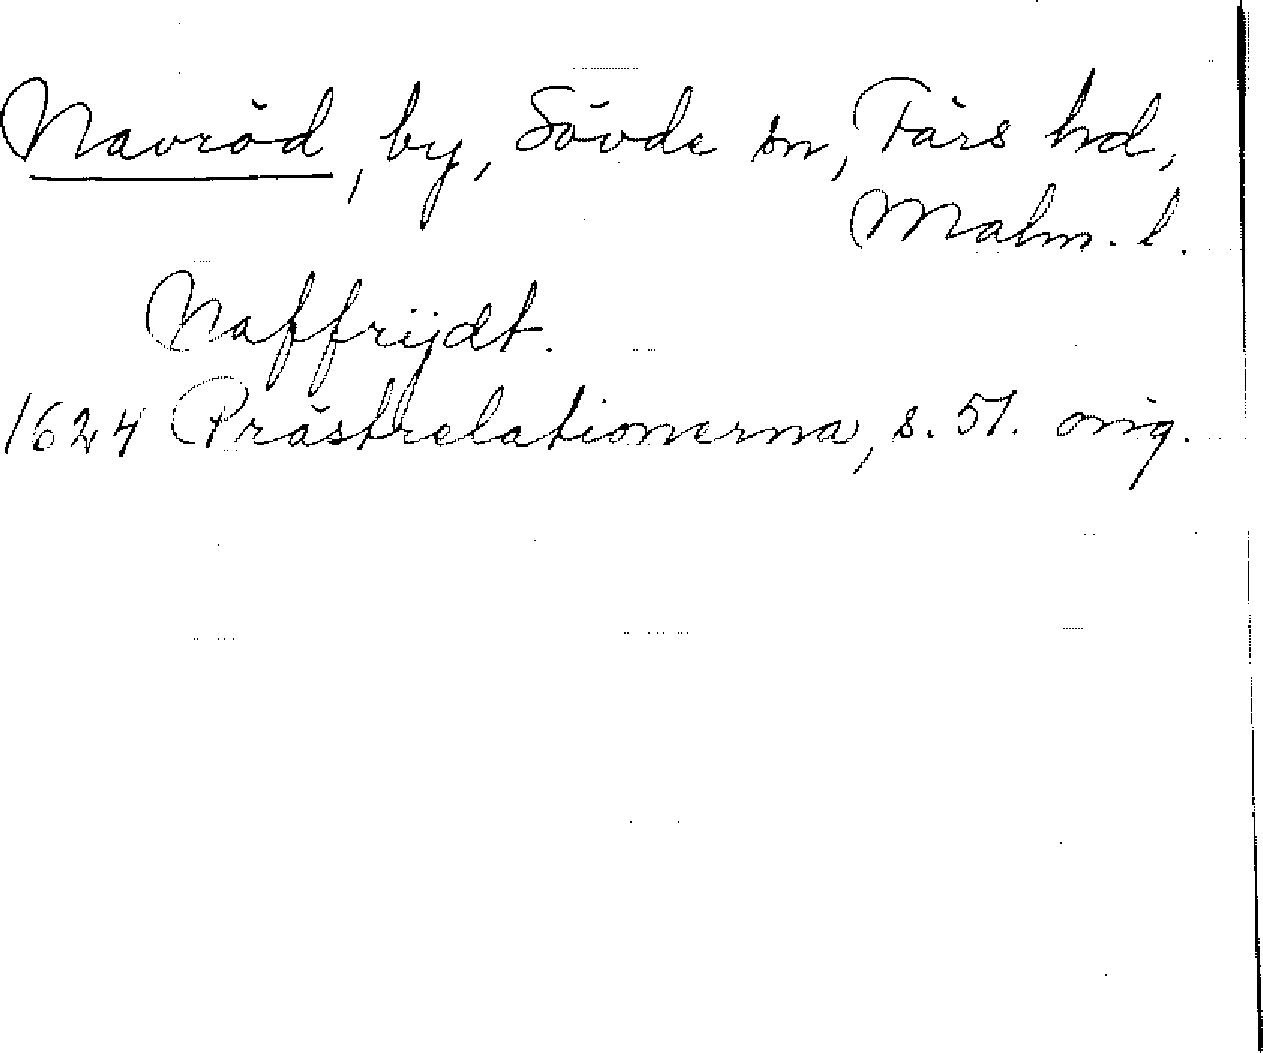 Navröd, by, Sövde sn, Färs hd,
Malm. l.
Naffrijdt.
1624 Prästrelationerna, s. 51. orig.